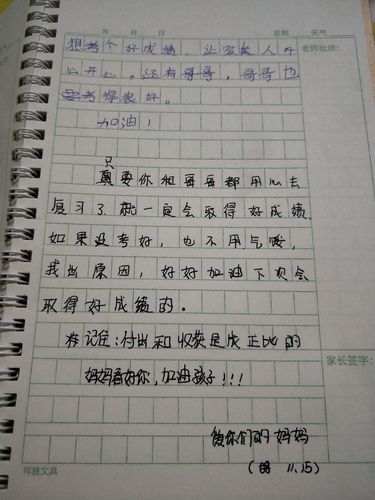 年 月 日 星期 天气
想考个好成绩，让家里人开 老师批语：
心开心。还有哥哥，哥哥也
要考得很好。
加油！
只
要你和哥哥都用心去
复习了就一定会取得好成绩
如果没考好，也不用气馁，
找出原因，好好加油下次会
取得好成绩的。
记住：付出和收获是成正比的
妈妈看好你，加油孩子！！！
家长签字：
你们的妈妈
( 11.15)
祥胜文具